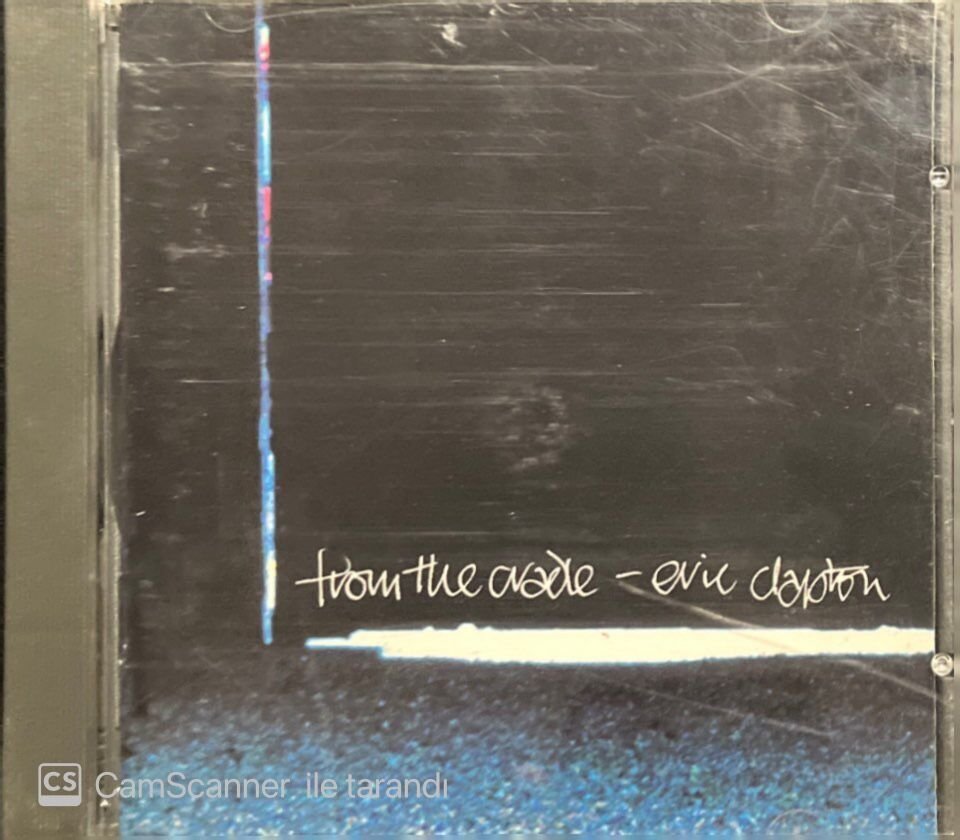 from the cradle - eric clapton
CS CamScanner ile tarandı